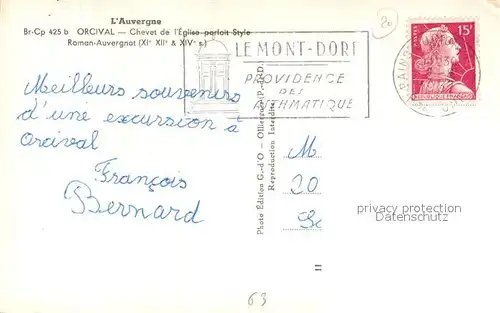 L'Auvergne
Br-Cp 425 b ORCIVAL — Chevet de l'Église parfait Style
Roman-Auvergnat (XIᵉ XIIᵉ & XIVᵉ s.)
20
LE MONT-DORE
PROVIDENCE
DES
ASTHMATIQUE
POSTES
15F
REPUBLIQUE FRANÇAISE
Meilleurs souvenirs
d'une excursion à
Orcival
François
Bernard
Photo Édition G.-d'O - Reproduction Interdite
M
20
privacy protection
Datenschutz
63